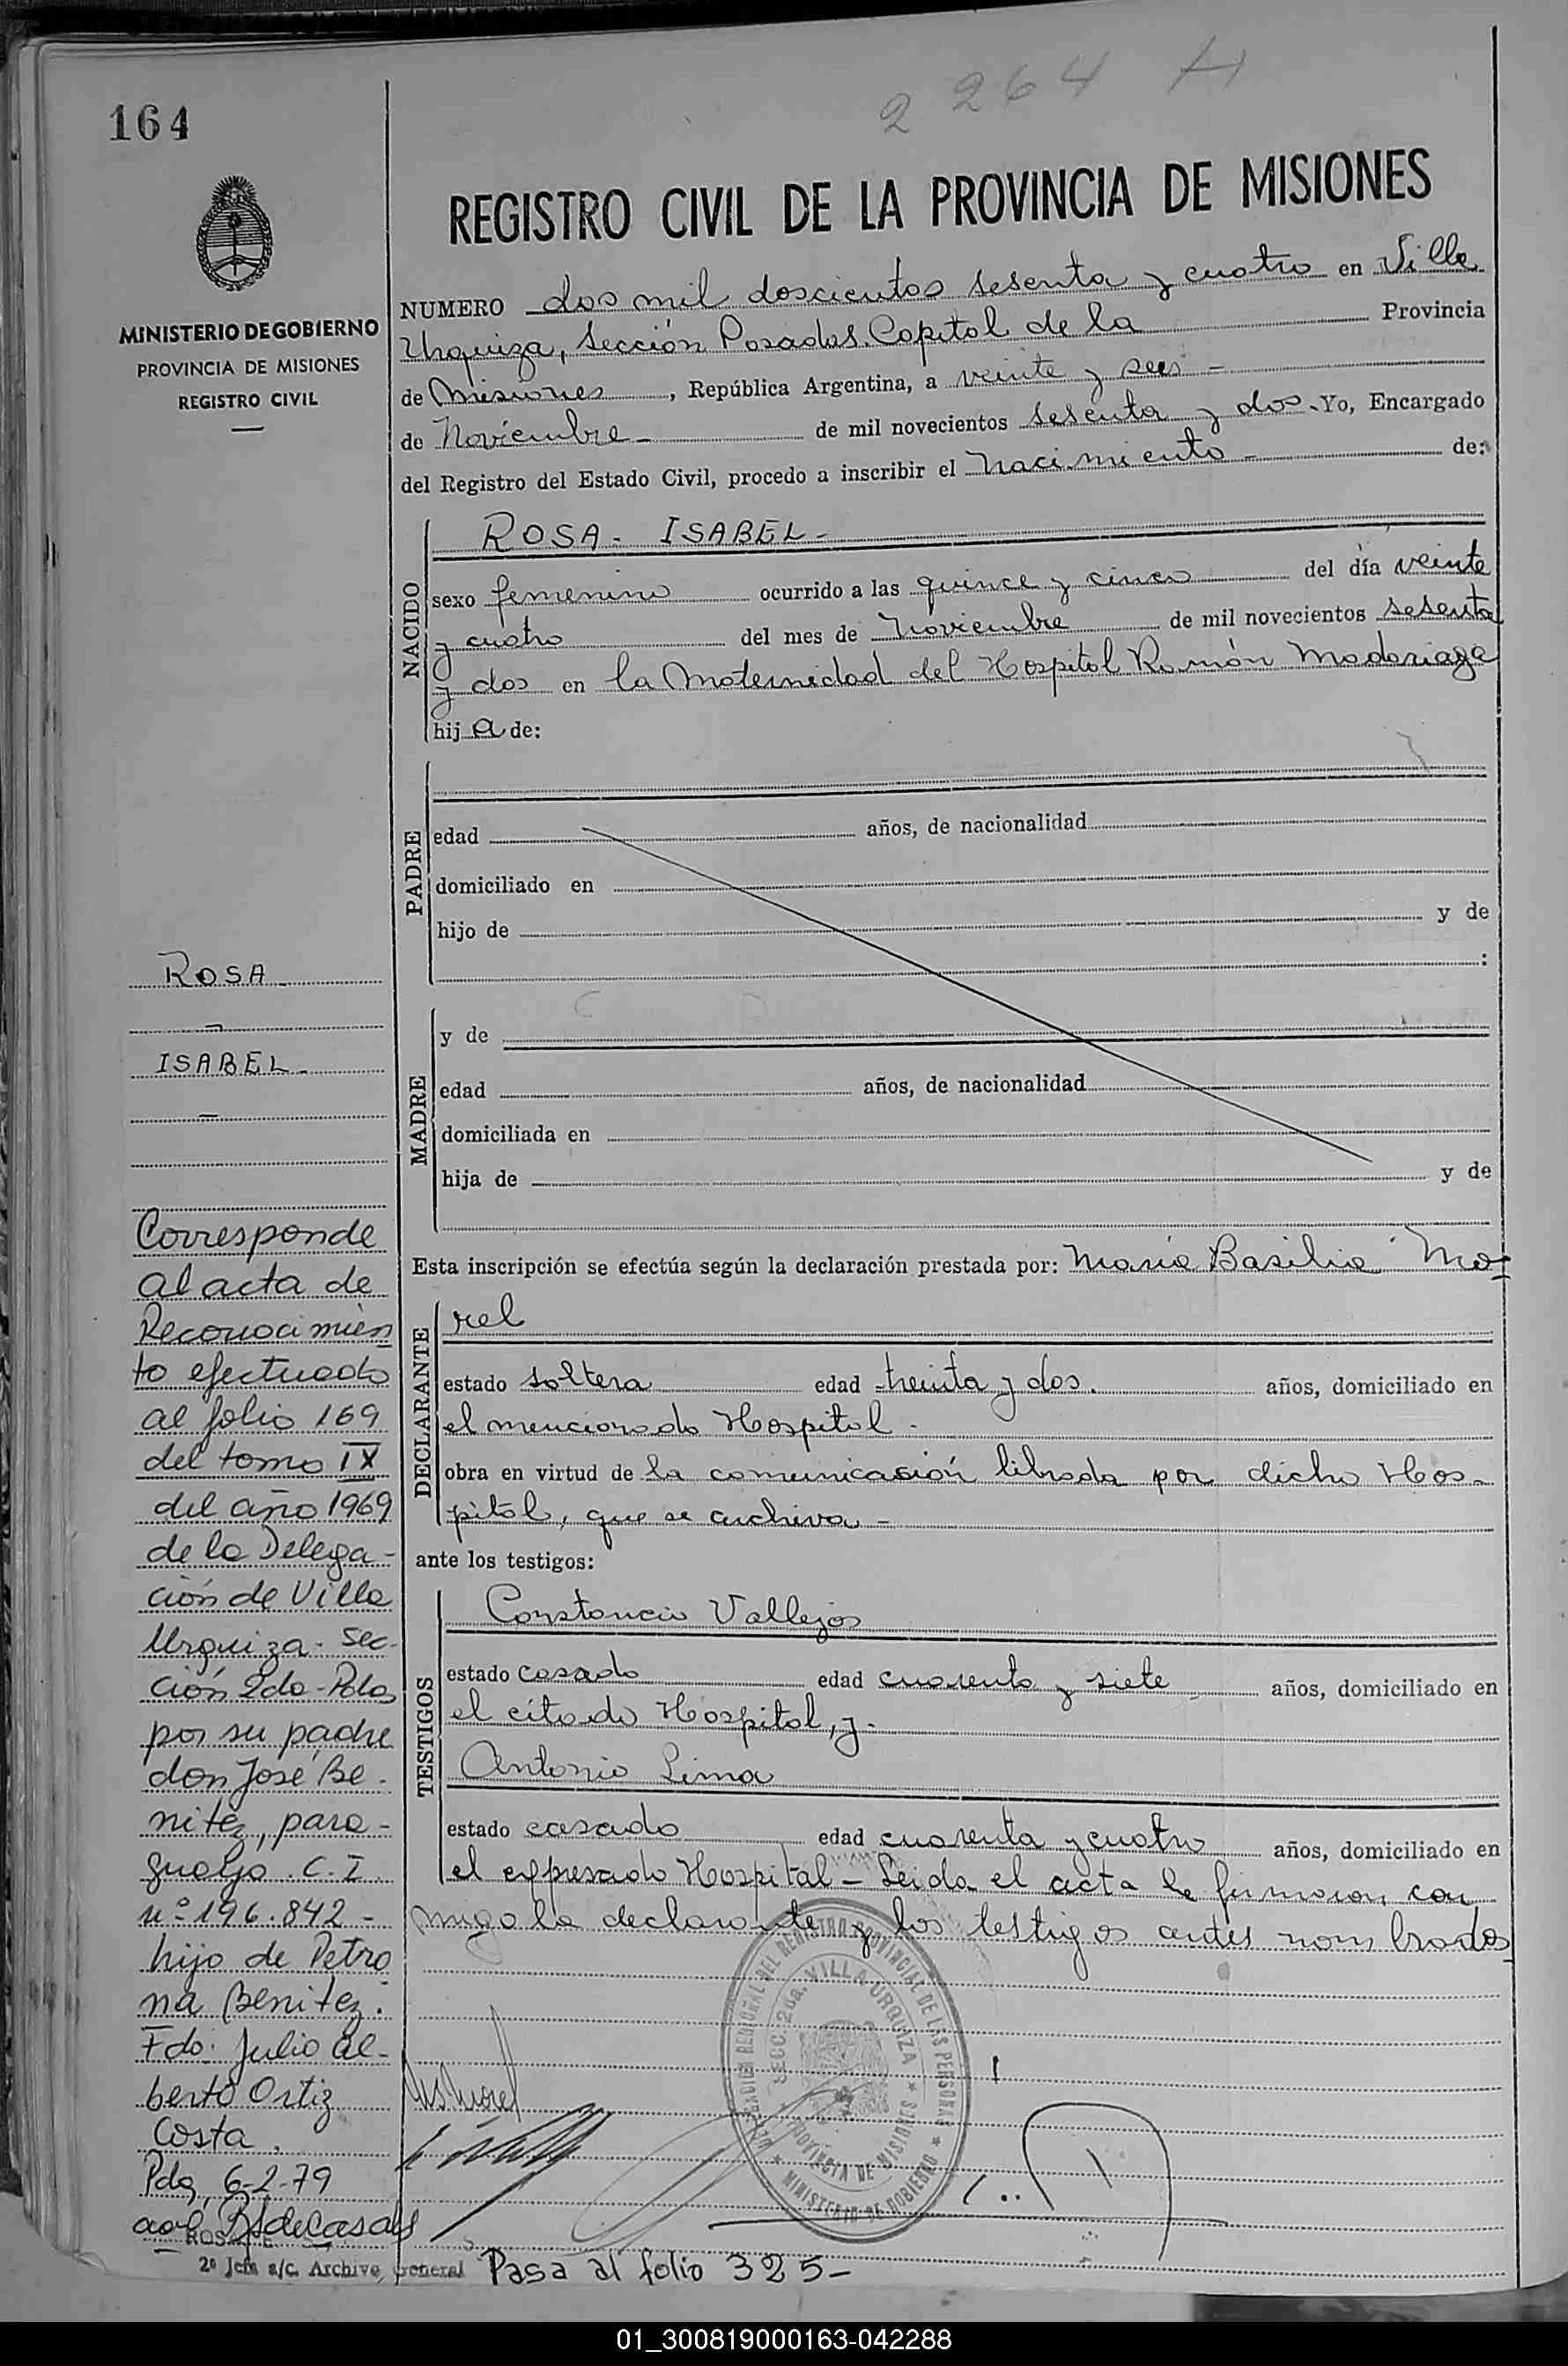 2 264 H
164
REGISTRO CIVIL DE LA PROVINCIA DE MISIONES
MINISTERIO DE GOBIERNO
PROVINCIA DE MISIONES
REGISTRO CIVIL
NUMERO dos mil doscientos sesenta y cuatro en Villa
Urquiza, Sección Posadas Capital de la Provincia
de Misiones, República Argentina, a veinte y seis -
de Noviembre - de mil novecientos sesenta y dos. Yo, Encargado
del Registro del Estado Civil, procedo a inscribir el Nacimiento - de:
NACIDO
ROSA - ISABEL -
sexo femenino ocurrido a las quince y cinco del día veinte
y cuatro del mes de Noviembre de mil novecientos sesenta
y dos en la Maternidad del Hospital Ramón Madariaga
hij a de:
PADRE
edad años, de nacionalidad
domiciliado en
hijo de y de
:
MADRE
y de
edad años, de nacionalidad
domiciliada en
hija de y de
Esta inscripción se efectúa según la declaración prestada por: María Basilia Mo-
DECLARANTE
rel
estado soltera edad treinta y dos. años, domiciliado en
el mencionado Hospital -
obra en virtud de la comunicación librada por dicho Hos-
pital, que se archiva -
ante los testigos:
TESTIGOS
Constancio Vallejos
estado casado edad cuarenta y siete años, domiciliado en
el citado Hospital, y -
Antonio Lima
estado casado edad cuarenta y cuatro años, domiciliado en
el expresado Hospital - Leída el acta la firmaron con
migo la declarante y los testigos antes nombrados
ROSA
-
ISABEL -
-
Corresponde
al acta de
Reconocimien
to efectuado
al folio 169
del tomo IX
del año 1969
de la Delega-
ción de Villa
Urquiza - Sec-
ción 2da - Pdas
por su padre
don José Be-
nitez, para-
guayo. C. I.
nº 196.842 -
hijo de Petro
na Benitez.
Fdo: Julio Al-
berto Ortiz
Costa.
Pdas, 6-2-79
2º Jefe a/c. Archivo General
DELEGACION REGIONAL DEL REGISTRO PROVINCIAL DE LAS PERSONAS
SECC. 2da. VILLA URQUIZA
PROVINCIA DE MISIONES
MINISTERIO DE GOBIERNO
Pasa al folio 325-
01_300819000163-042288